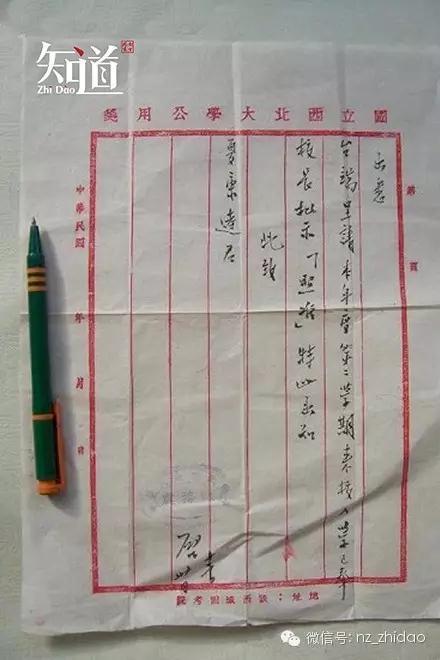 知道
Zhi Dao
國立西北大學公用箋
第 頁
台端呈請本年度第二學期來校入學已奉
校長批示「照准」特此函知
此致
夏達君
啟
中華民國 年 月 日
地址：陝西城固考院
微信号: nz_zhidao